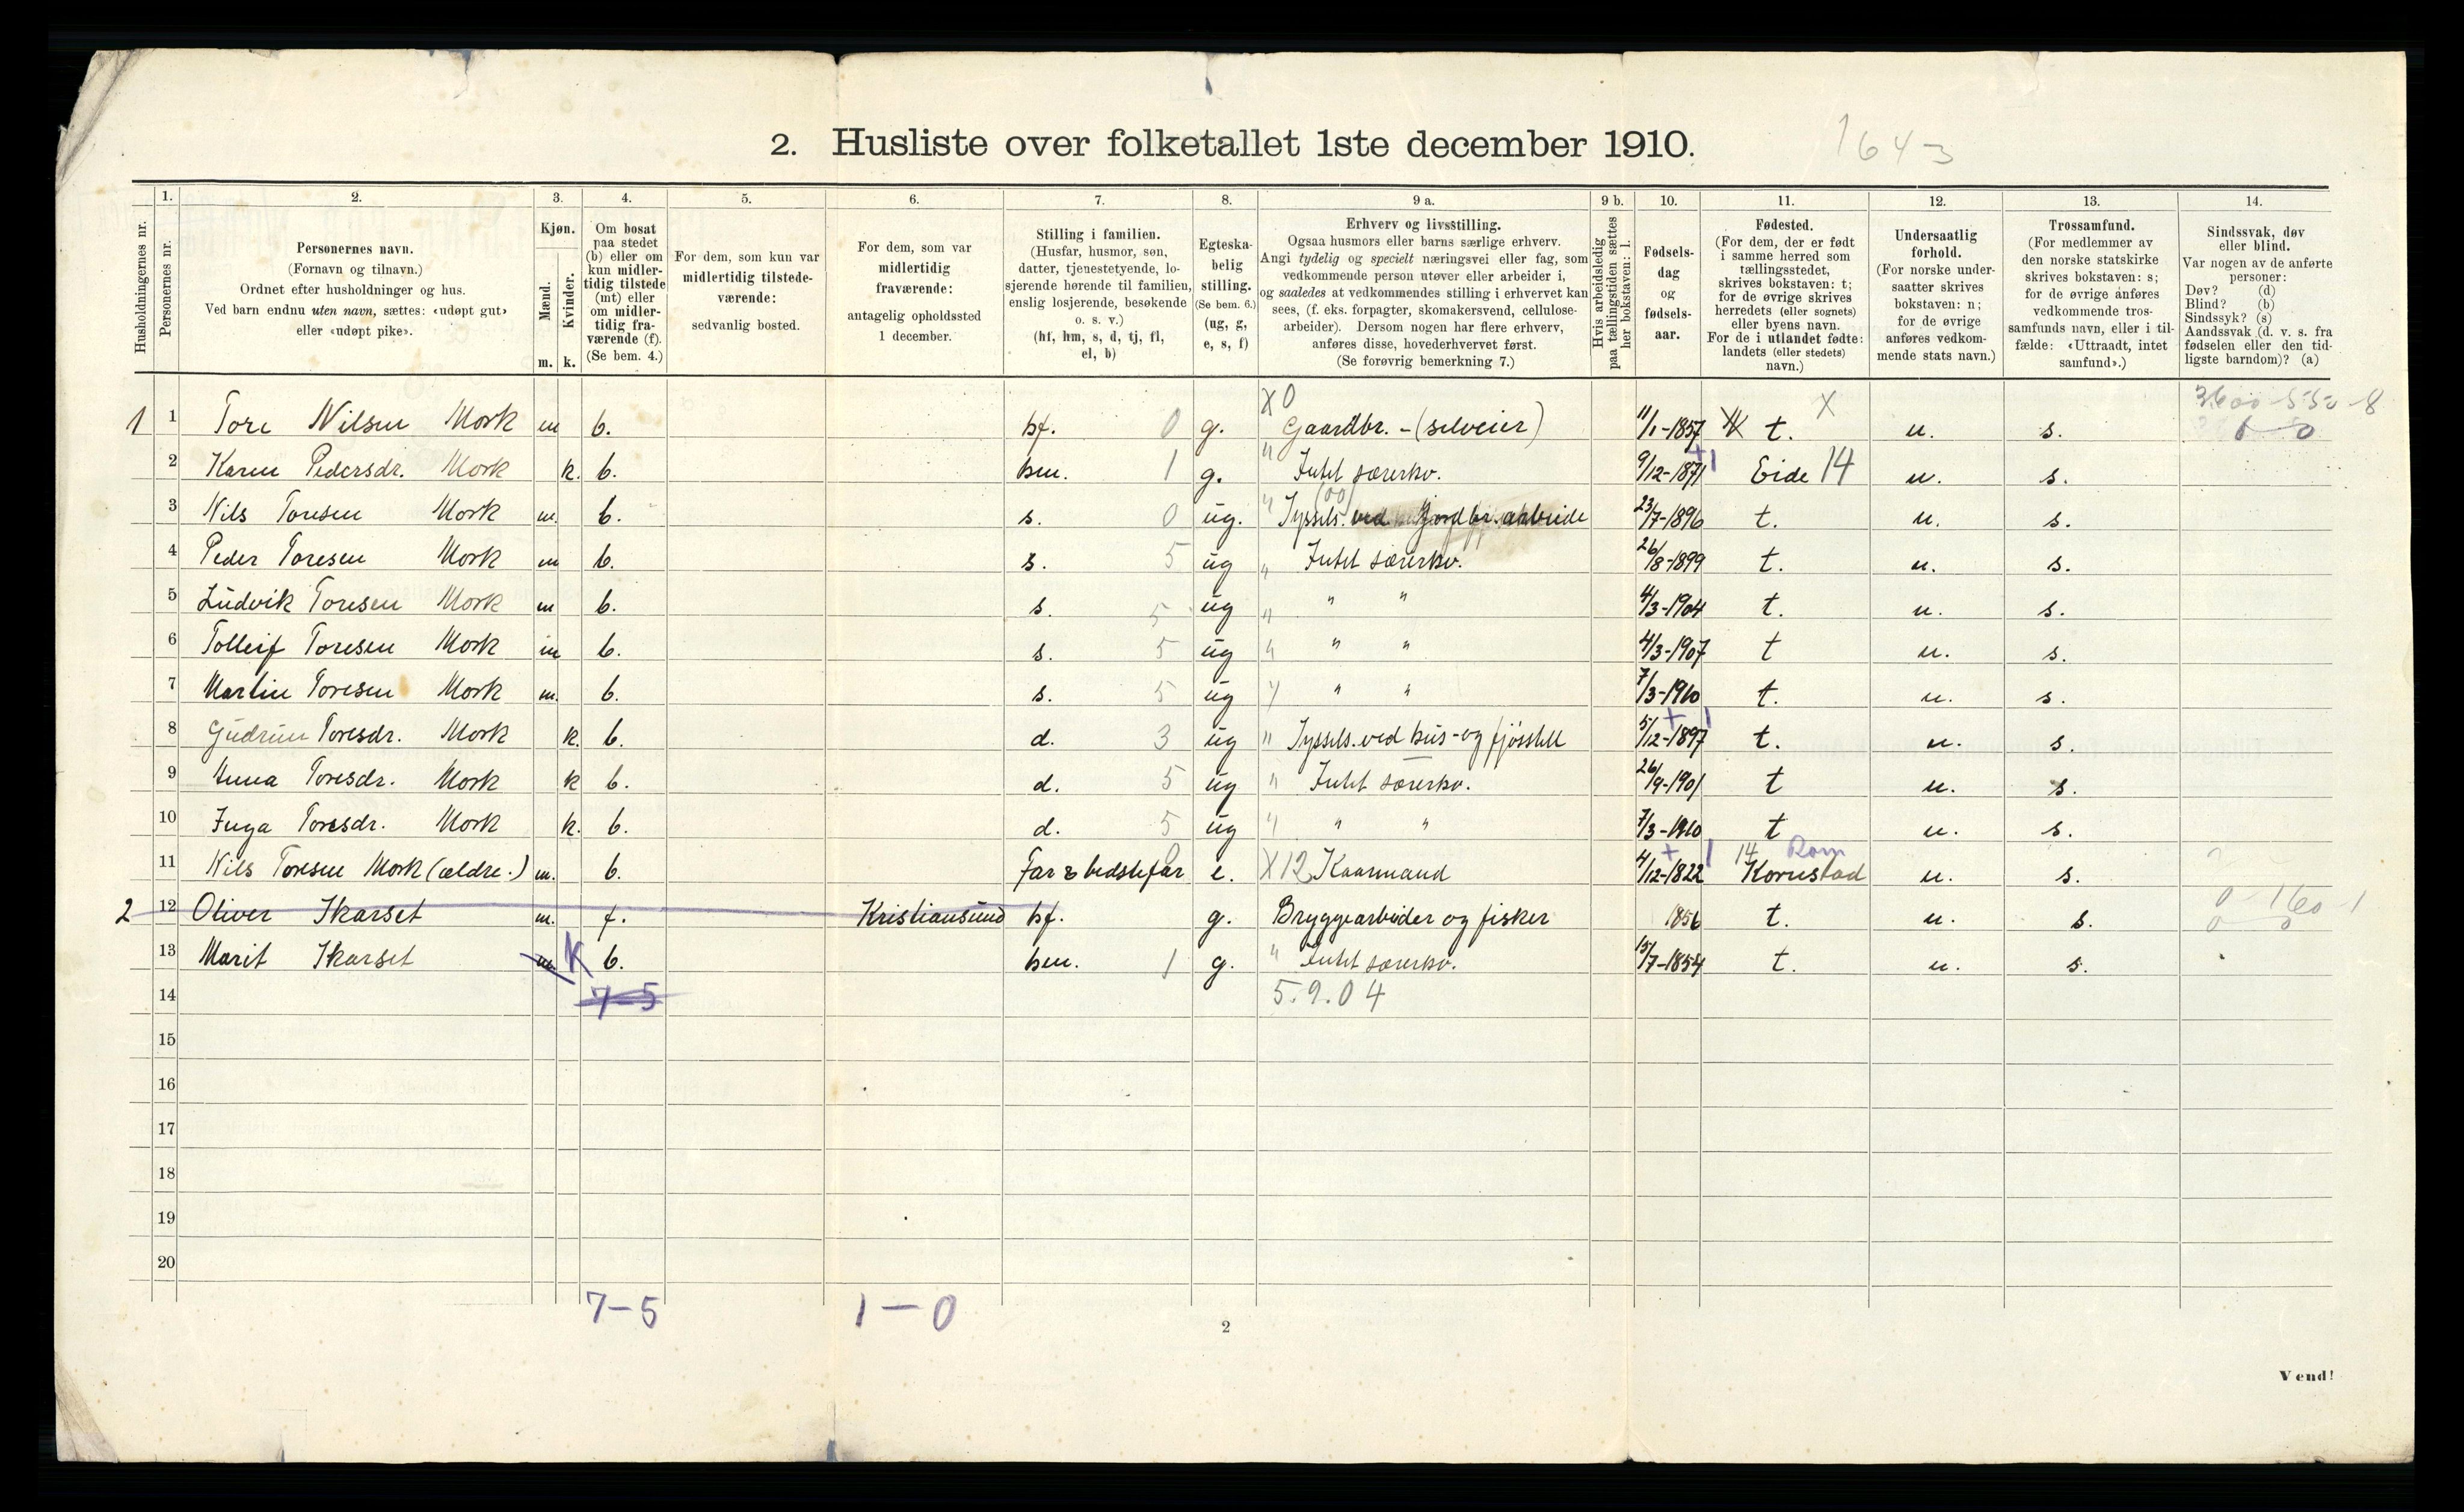 2. Husliste over folketallet 1ste december 1910.
1643
Husholdningernes nr.
1. Personernes nr.
2. Personernes navn. (Fornavn og tilnavn.) Ordnet efter husholdninger og hus. Ved barn endnu uten navn, sættes: «udøpt gut» eller «udøpt pike».
3. Kjøn. Mænd. m. Kvinder. k.
4. Om bosat paa stedet (b) eller om kun midlertidig tilstede (mt) eller om midlertidig fraværende (f). (Se bem. 4.)
5. For dem, som kun var midlertidig tilstedeværende: sedvanlig bosted.
6. For dem, som var midlertidig fraværende: antagelig opholdssted 1 december.
7. Stilling i familien. (Husfar, husmor, søn, datter, tjenestetyende, losjerende hørende til familien, enslig losjerende, besøkende o. s. v.) (hf, hm, s, d, tj, fl, el, b)
8. Egteskabelig stilling. (Se bem. 6.) (ug, g, e, s, f)
9 a. Erhverv og livsstilling. Ogsaa husmors eller barns særlige erhverv. Angi tydelig og specielt næringsvei eller fag, som vedkommende person utøver eller arbeider i, og saaledes at vedkommendes stilling i erhvervet kan sees, (f. eks. forpagter, skomakersvend, cellulosearbeider). Dersom nogen har flere erhverv, anføres disse, hovederhvervet først. (Se forøvrig bemerkning 7.)
9 b. Hvis arbeidsledig paa tællingstiden sættes her bokstaven: l.
10. Fødselsdag og fødselsaar.
11. Fødested. (For dem, der er født i samme herred som tællingsstedet, skrives bokstaven: t; for de øvrige skrives herredets (eller sognets) eller byens navn. For de i utlandet fødte: landets (eller stedets) navn.)
12. Undersaatlig forhold. (For norske undersaatter skrives bokstaven: n; for de øvrige anføres vedkommende stats navn.)
13. Trossamfund. (For medlemmer av den norske statskirke skrives bokstaven: s; for de øvrige anføres vedkommende trossamfunds navn, eller i tilfælde: «Uttraadt, intet samfund».)
14. Sindssvak, døv eller blind. Var nogen av de anførte personer: Døv? (d) Blind? (b) Sindssyk? (s) Aandssvak (d. v. s. fra fødselen eller den tidligste barndom)? (a)
X0 X 3600-550-8
1 1 Tore Nilsen Mork m b. hf. 0 g. Gaardbr. - (selveier) 11/1-1857 t. n. s. 0 0
2 Karen Pedersdr. Mork k. b. hm. 1 g. " Intet særerhv. 9/12-1871 Eide 14 n. s.
3 Nils Toresen Mork m. b. s. 0 ug. " Syssels. ved Jordbr. arbeide 23/7-1896 t. n. s.
4 Peder Toresen Mork m b. s. 5 ug " Intet særerhv. 26/8-1899 t. n. s.
5 Ludvik Toresen Mork m b. s. 5 ug " " " 4/3-1904 t. n. s.
6 Tolleif Toresen Mork m b. s. 5 ug " " " 4/3-1907 t n. s.
7 Martin Toresen Mork m. b. s. 5 ug " " " 7/3-1910 t. n. s.
8 Gudrun Toresdr. Mork k. b. d. 3 ug " Syssels. ved hus- og fjøsstell 5/12-1897 t. n. s.
9 Anna Toresdr. Mork k b. d. 5 ug " Intet særerhv. 26/9-1901 t n. s.
10 Inga Toresdr. Mork k. b. d. 5 ug " " " 7/3-1910 t n. s.
11 Nils Toresen Mork (ældre.) m. b. Far & bedstefar e. X12 Kaarmand 4/12-1822 14 Kornstad Rom n. s.
2 12 Oliver Skarset m. f. Kristiansund hf. g. Bryggearbeider og fisker 1856 t. n. s. 0-160-1
13 Marit Skarset m k b. hm. 1 g. " Intet særerhv. 15/7-1854 t. n. s.
14 7-5 5.9.04
15
16
17
18
19
20
7-5 1-0
2
Vend!